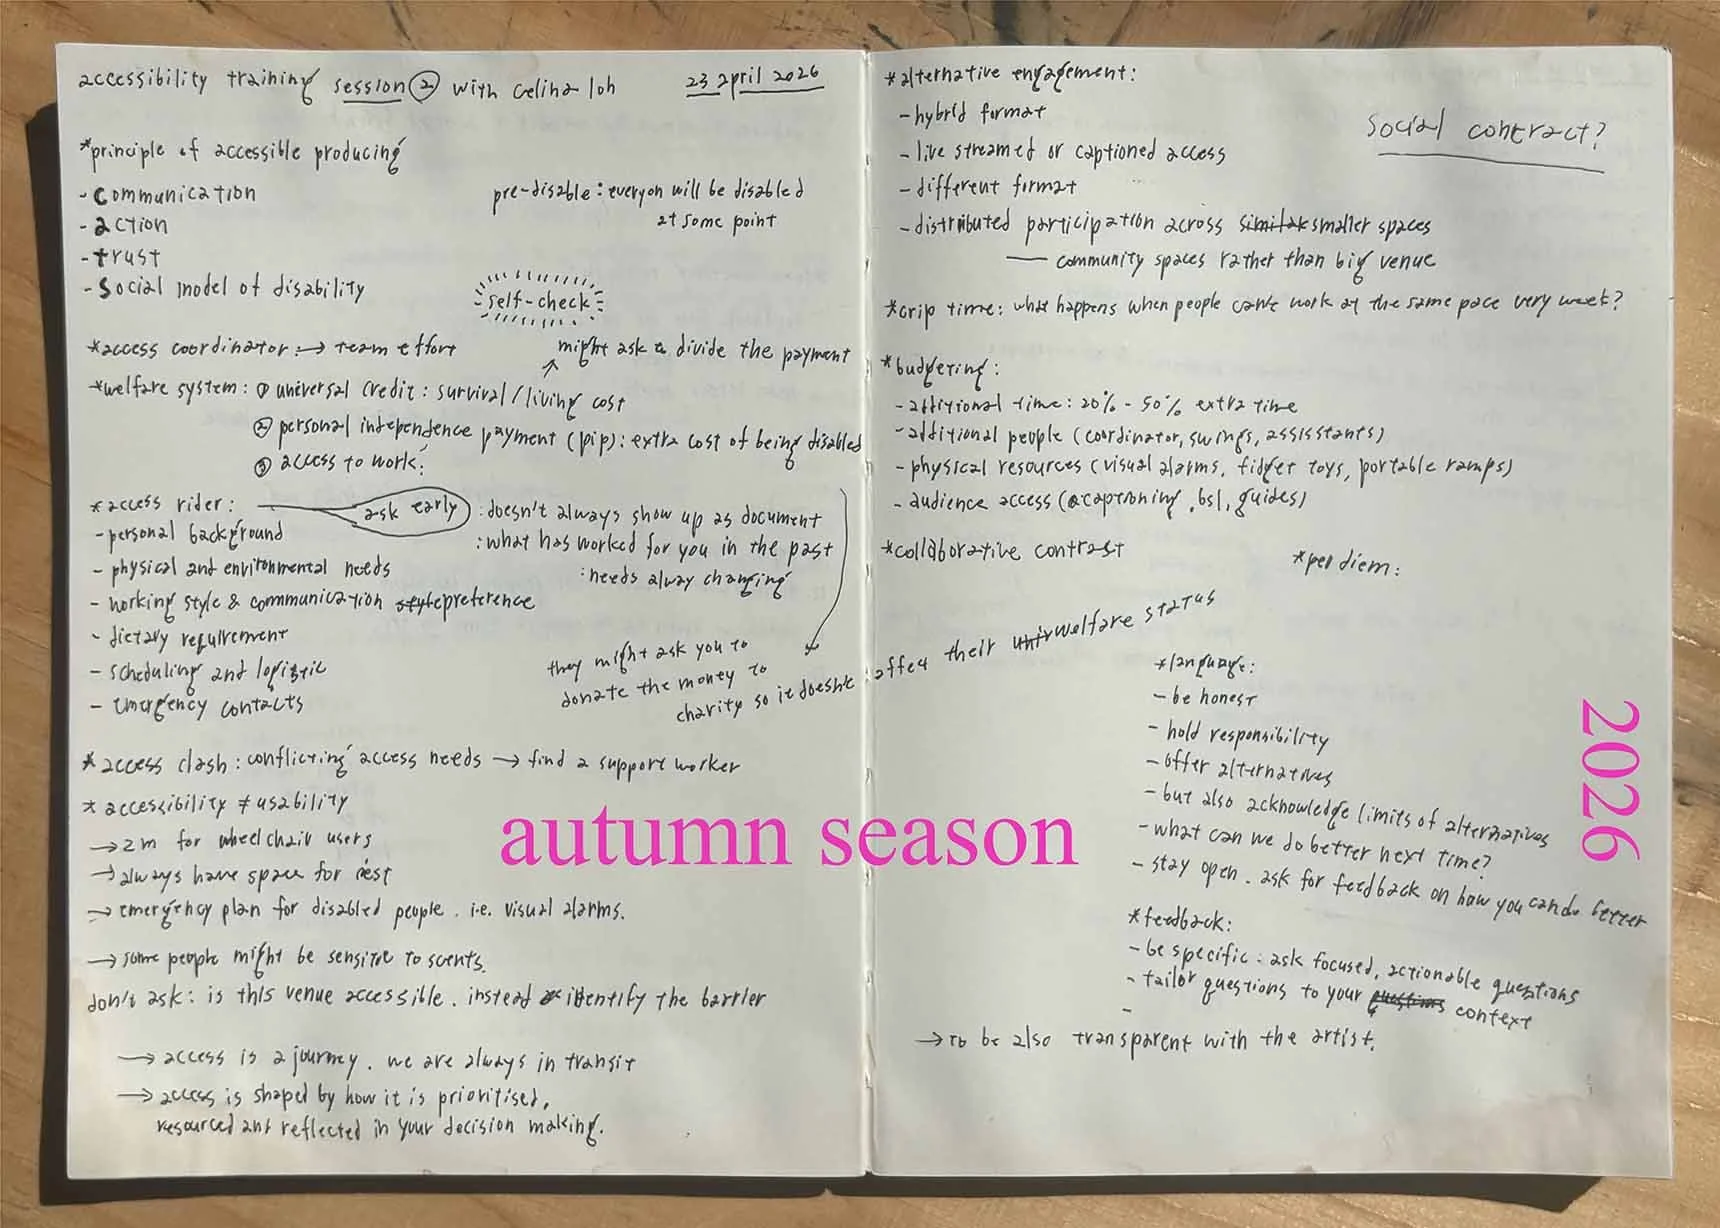 accessibility training session ② with celina loh 23 april 2026
*principle of accessible producing
- communication
- action
- trust
- social model of disability
pre-disable : everyon will be disabled
at some point
self-check
*access coordinator : → team effort
might ask to divide the payment
*welfare system : ① universal credit : survival / living cost
② personal independence payment (pip) : extra cost of being disabled
③ access to work :
*access rider : ask early
: doesn't always show up as document
: what has worked for you in the past
: needs alway changing
- personal background
- physical and environmental needs
- working style & communication style preference
- dietary requirement
- scheduling and logistic
- emergency contacts
they might ask you to
donate the money to
charity so it doesn't affect their univ welfare status
* access clash : conflicting access needs → find a support worker
* accessibility ≠ usability
→ 2m for wheelchair users
→ always have space for rest
→ emergency plan for disabled people . i.e. visual alarms.
→ some people might be sensitive to scents.
don't ask : is this venue accessible . instead identify the barrier
→ access is a journey . we are always in transit
→ access is shaped by how it is prioritised,
resourced and reflected in your decision making.
*alternative engagement :
- hybrid format
- live streamed or captioned access
- different format
- distributed participation across similar smaller spaces
— community spaces rather than big venue
social contract?
*crip time : what happens when people can't work at the same pace very week?
*budgeting :
- additional time : 20% - 50% extra time
- additional people (coordinator, swings, assisstants)
- physical resources (visual alarms, fidget toys, portable ramps)
- audience access (captioning , bsl, guides)
*collaborative contrast
*per diem :
*language :
- be honest
- hold responsibility
- offer alternatives
- but also acknowledge limits of alternatives
- what can we do better next time?
- stay open . ask for feedback on how you can do better
*feedback :
- be specific : ask focused, actionable questions
- tailor questions to your questions context
-
→ to be also transparent with the artist.
autumn season
2026